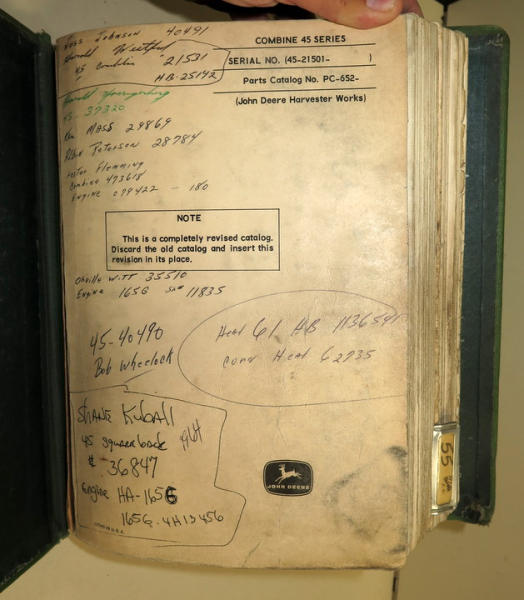 COMBINE 45 SERIES
SERIAL NO. (45-21501- )
Parts Catalog No. PC-652-
(John Deere Harvester Works)
Johnson 40491
Harold
45 Combine 21531
HB-25142
Harold
45- 37320
Ken MASS 29869
Peterson 28784
Lester Flemming
Combine 473618
Engine 099422 - 180
NOTE
This is a completely revised catalog.
Discard the old catalog and insert this
revision in its place.
Orville WITT 35510
Engine 165G Sn# 11835
45-40490
Bob Wheelock
Head 61 HB 1136541
Corn Head 62735
SHANE Kuball
45 Squareback 1964
# 36847
Engine HA-165G
165G-4H13456
JOHN DEERE
55